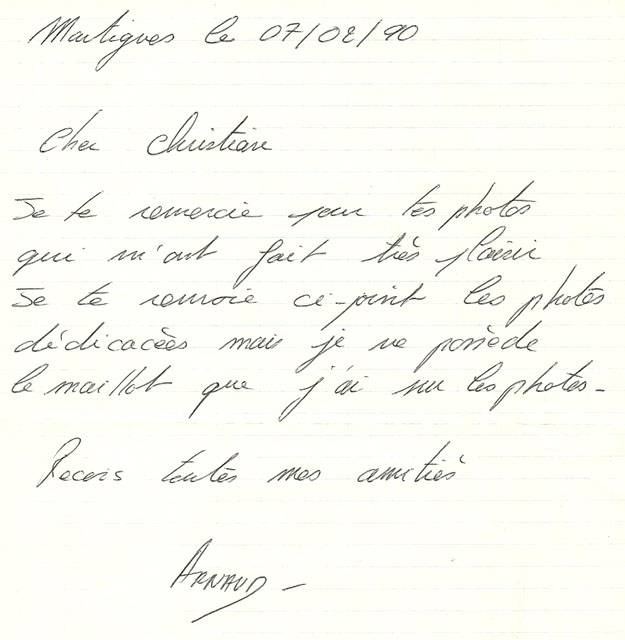 Martigues le 07/02/90
Cher Christiane
Je te remercie pour tes photos
qui m'ont fait très plaisir
Je te renvoie ci-joint les photos
dédicacées mais je ne possède
le maillot que j'ai sur les photos -
Recois toutes mes amitiés
ARNAUD -